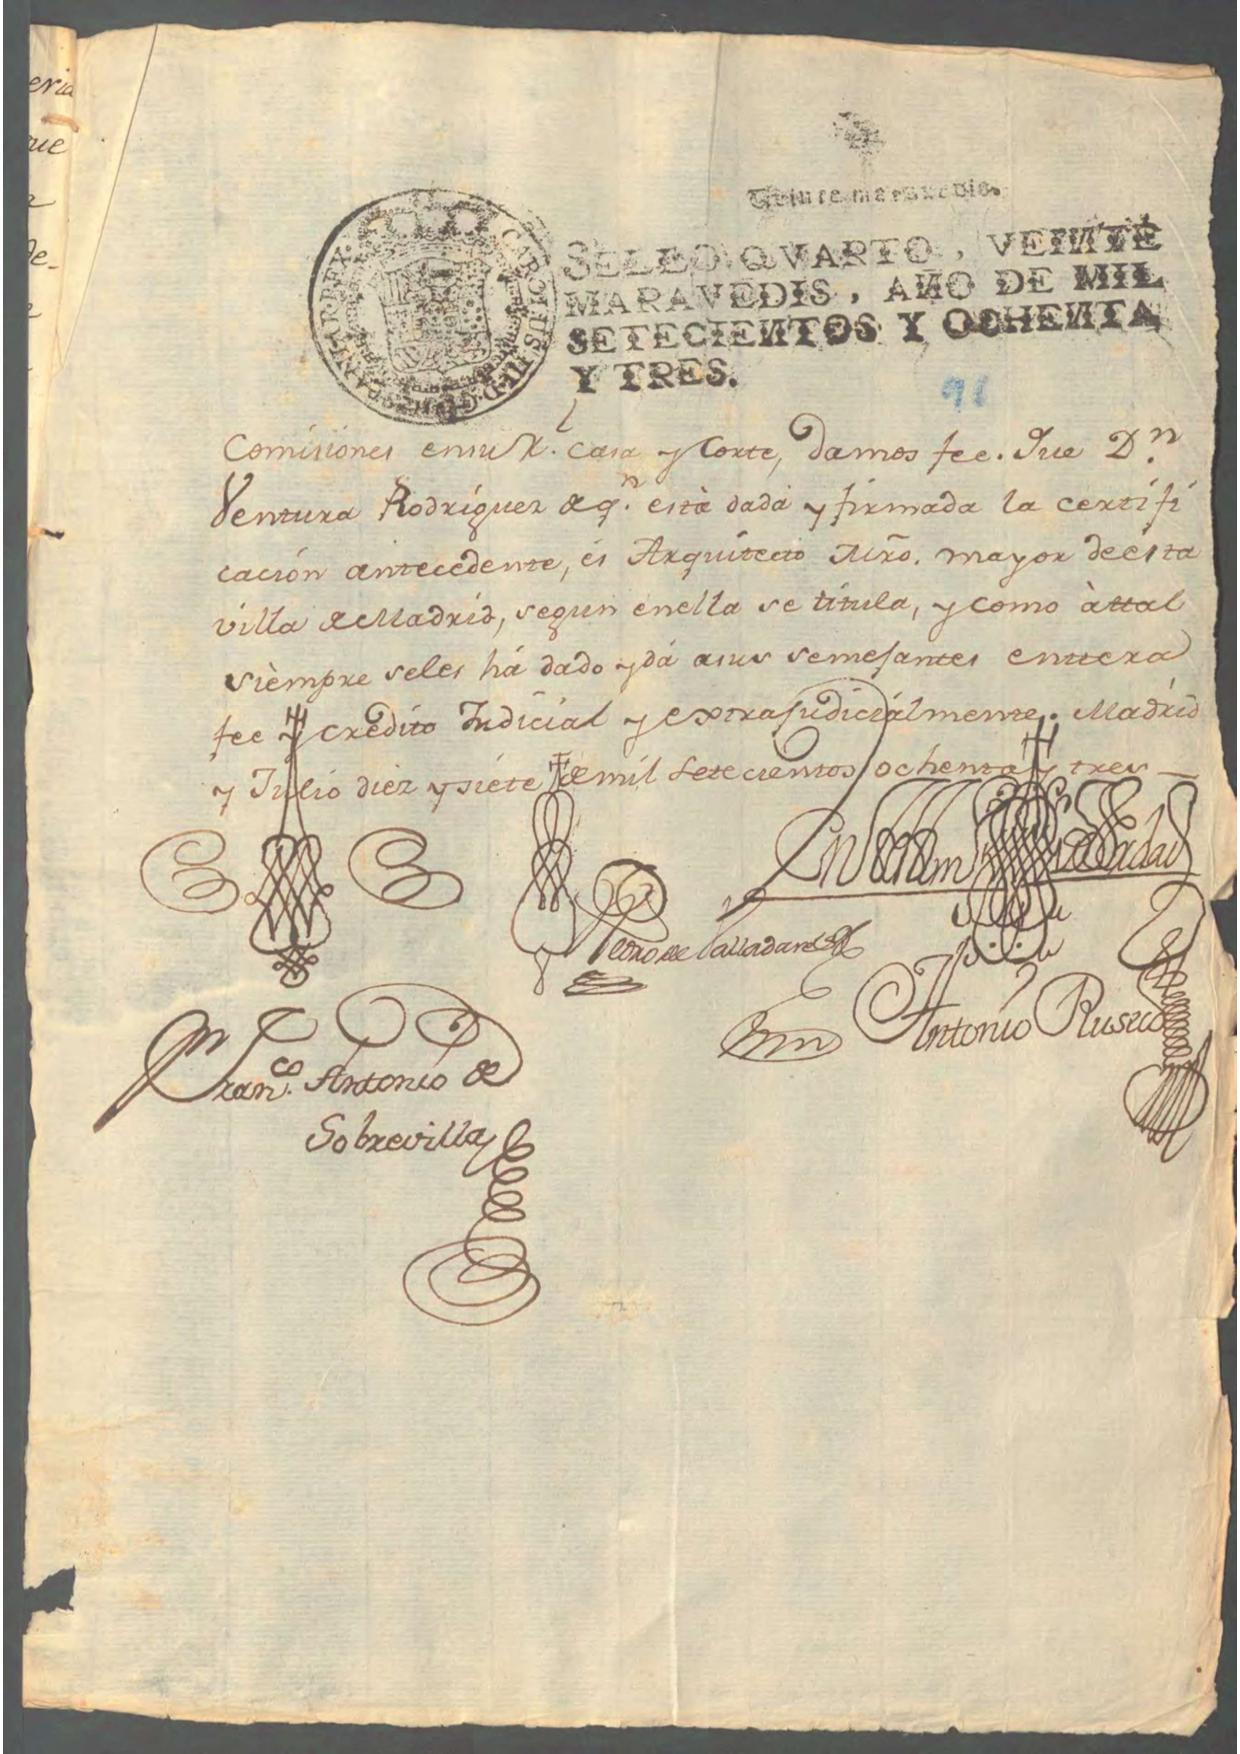 eria
que
de-
Veinte maravedis.
SELLO QVARTO, VEINTE
MARAVEDIS, AÑO DE MIL
SETECIENTOS Y OCHENTA
Y TRES.
CAR III D G HISPANIAR REX
91
Comisiones ensu Rl. Casa y Corte, damos fee. Que Dn.
Ventura Rodríguez de qn. està dada y firmada la certifi
cación antecedente, és Arquitecto Mro. mayor de ésta
villa de Madrid, segun enella se titúla, y como àttal
sièmpre seles há dado y dá asus semejantes enttera
fee y crédito Judicial y extrajudiciàlmente. Madrid
y Julio diez y siéte de mil setecientos ochenta y tres
En testim de Verdad
Pedro de Valladares
Antonio Rusecо
Franco. António de
Sobrevilla